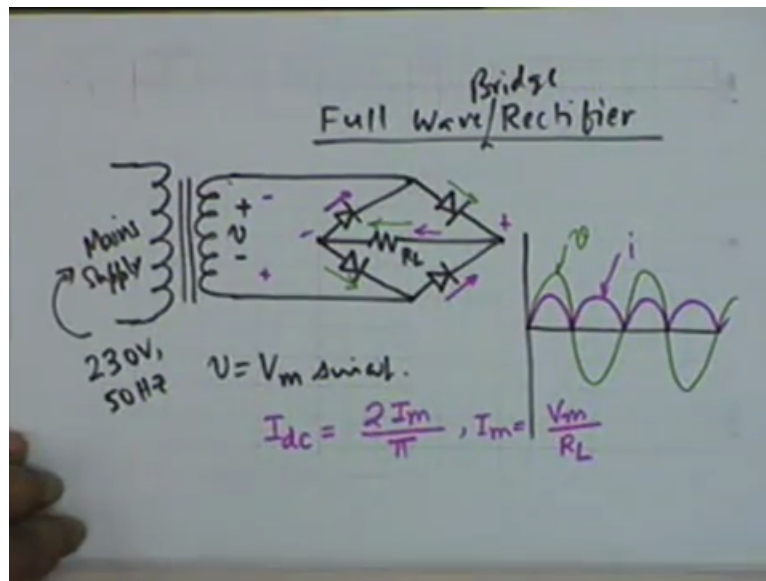 Bridge
Full Wave/Rectifier
Mains
Supply
230V,
50Hz
+ -
v
- +
-
+
R_L
v
i
v = V_m sin ωt.
I_dc = 2I_m/π , I_m = V_m/R_L